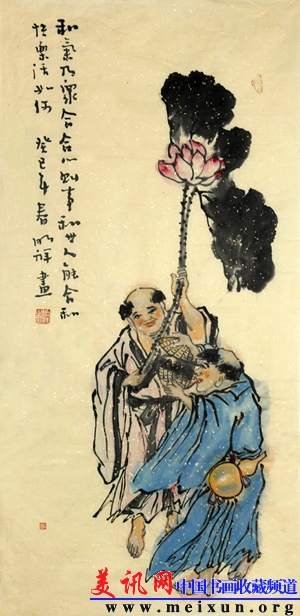 和氣乃眾合合心則事和世人能合和
快樂活如何 癸巳年春 明祥畫
美讯网 中国书画收藏频道
www.meixun.org